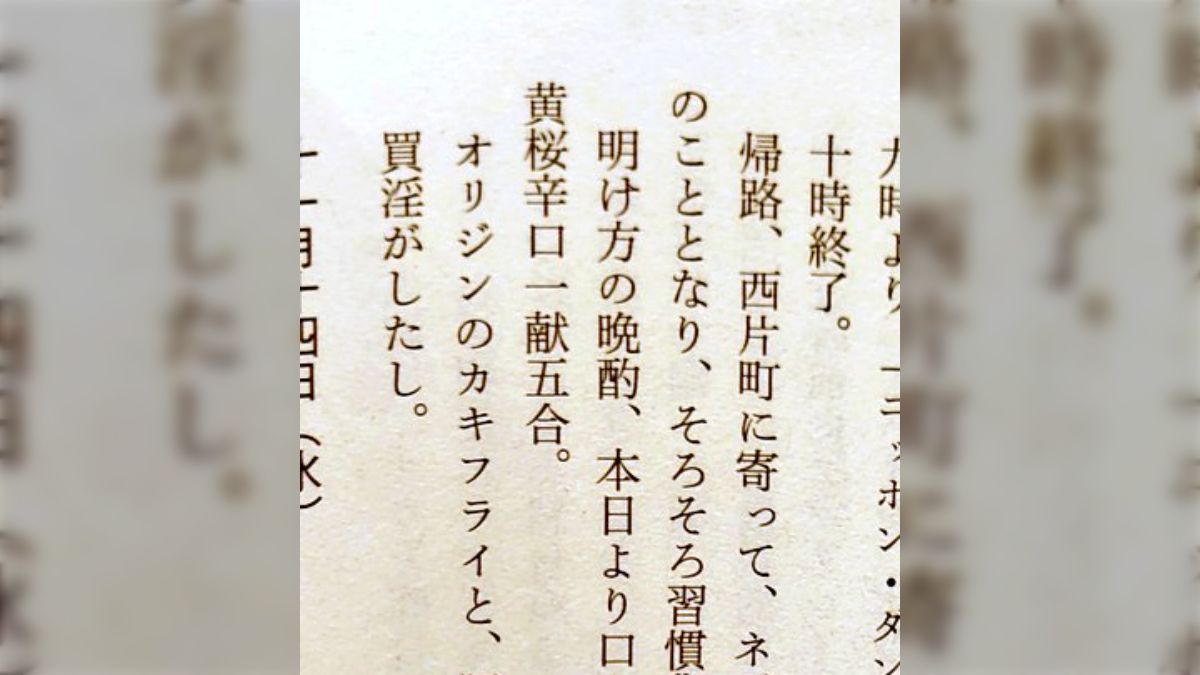 九時より、「ニッポン・ダン
十時終了。
帰路、西片町に寄って、ネ
のこととなり、そろそろ習慣
明け方の晩酌、本日より口
黄桜辛口一献五合。
オリジンのカキフライと、
買淫がしたし。
十一月十四日（水）